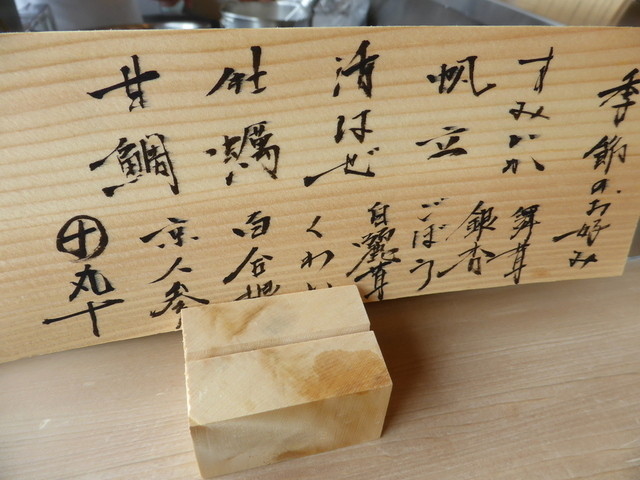 季節のお好み
すみいか
帆立
はぜ
牡蠣
甘鯛
舞茸
銀杏
ごぼう
白麗茸
くわい
百合根
京人参
㊉丸十